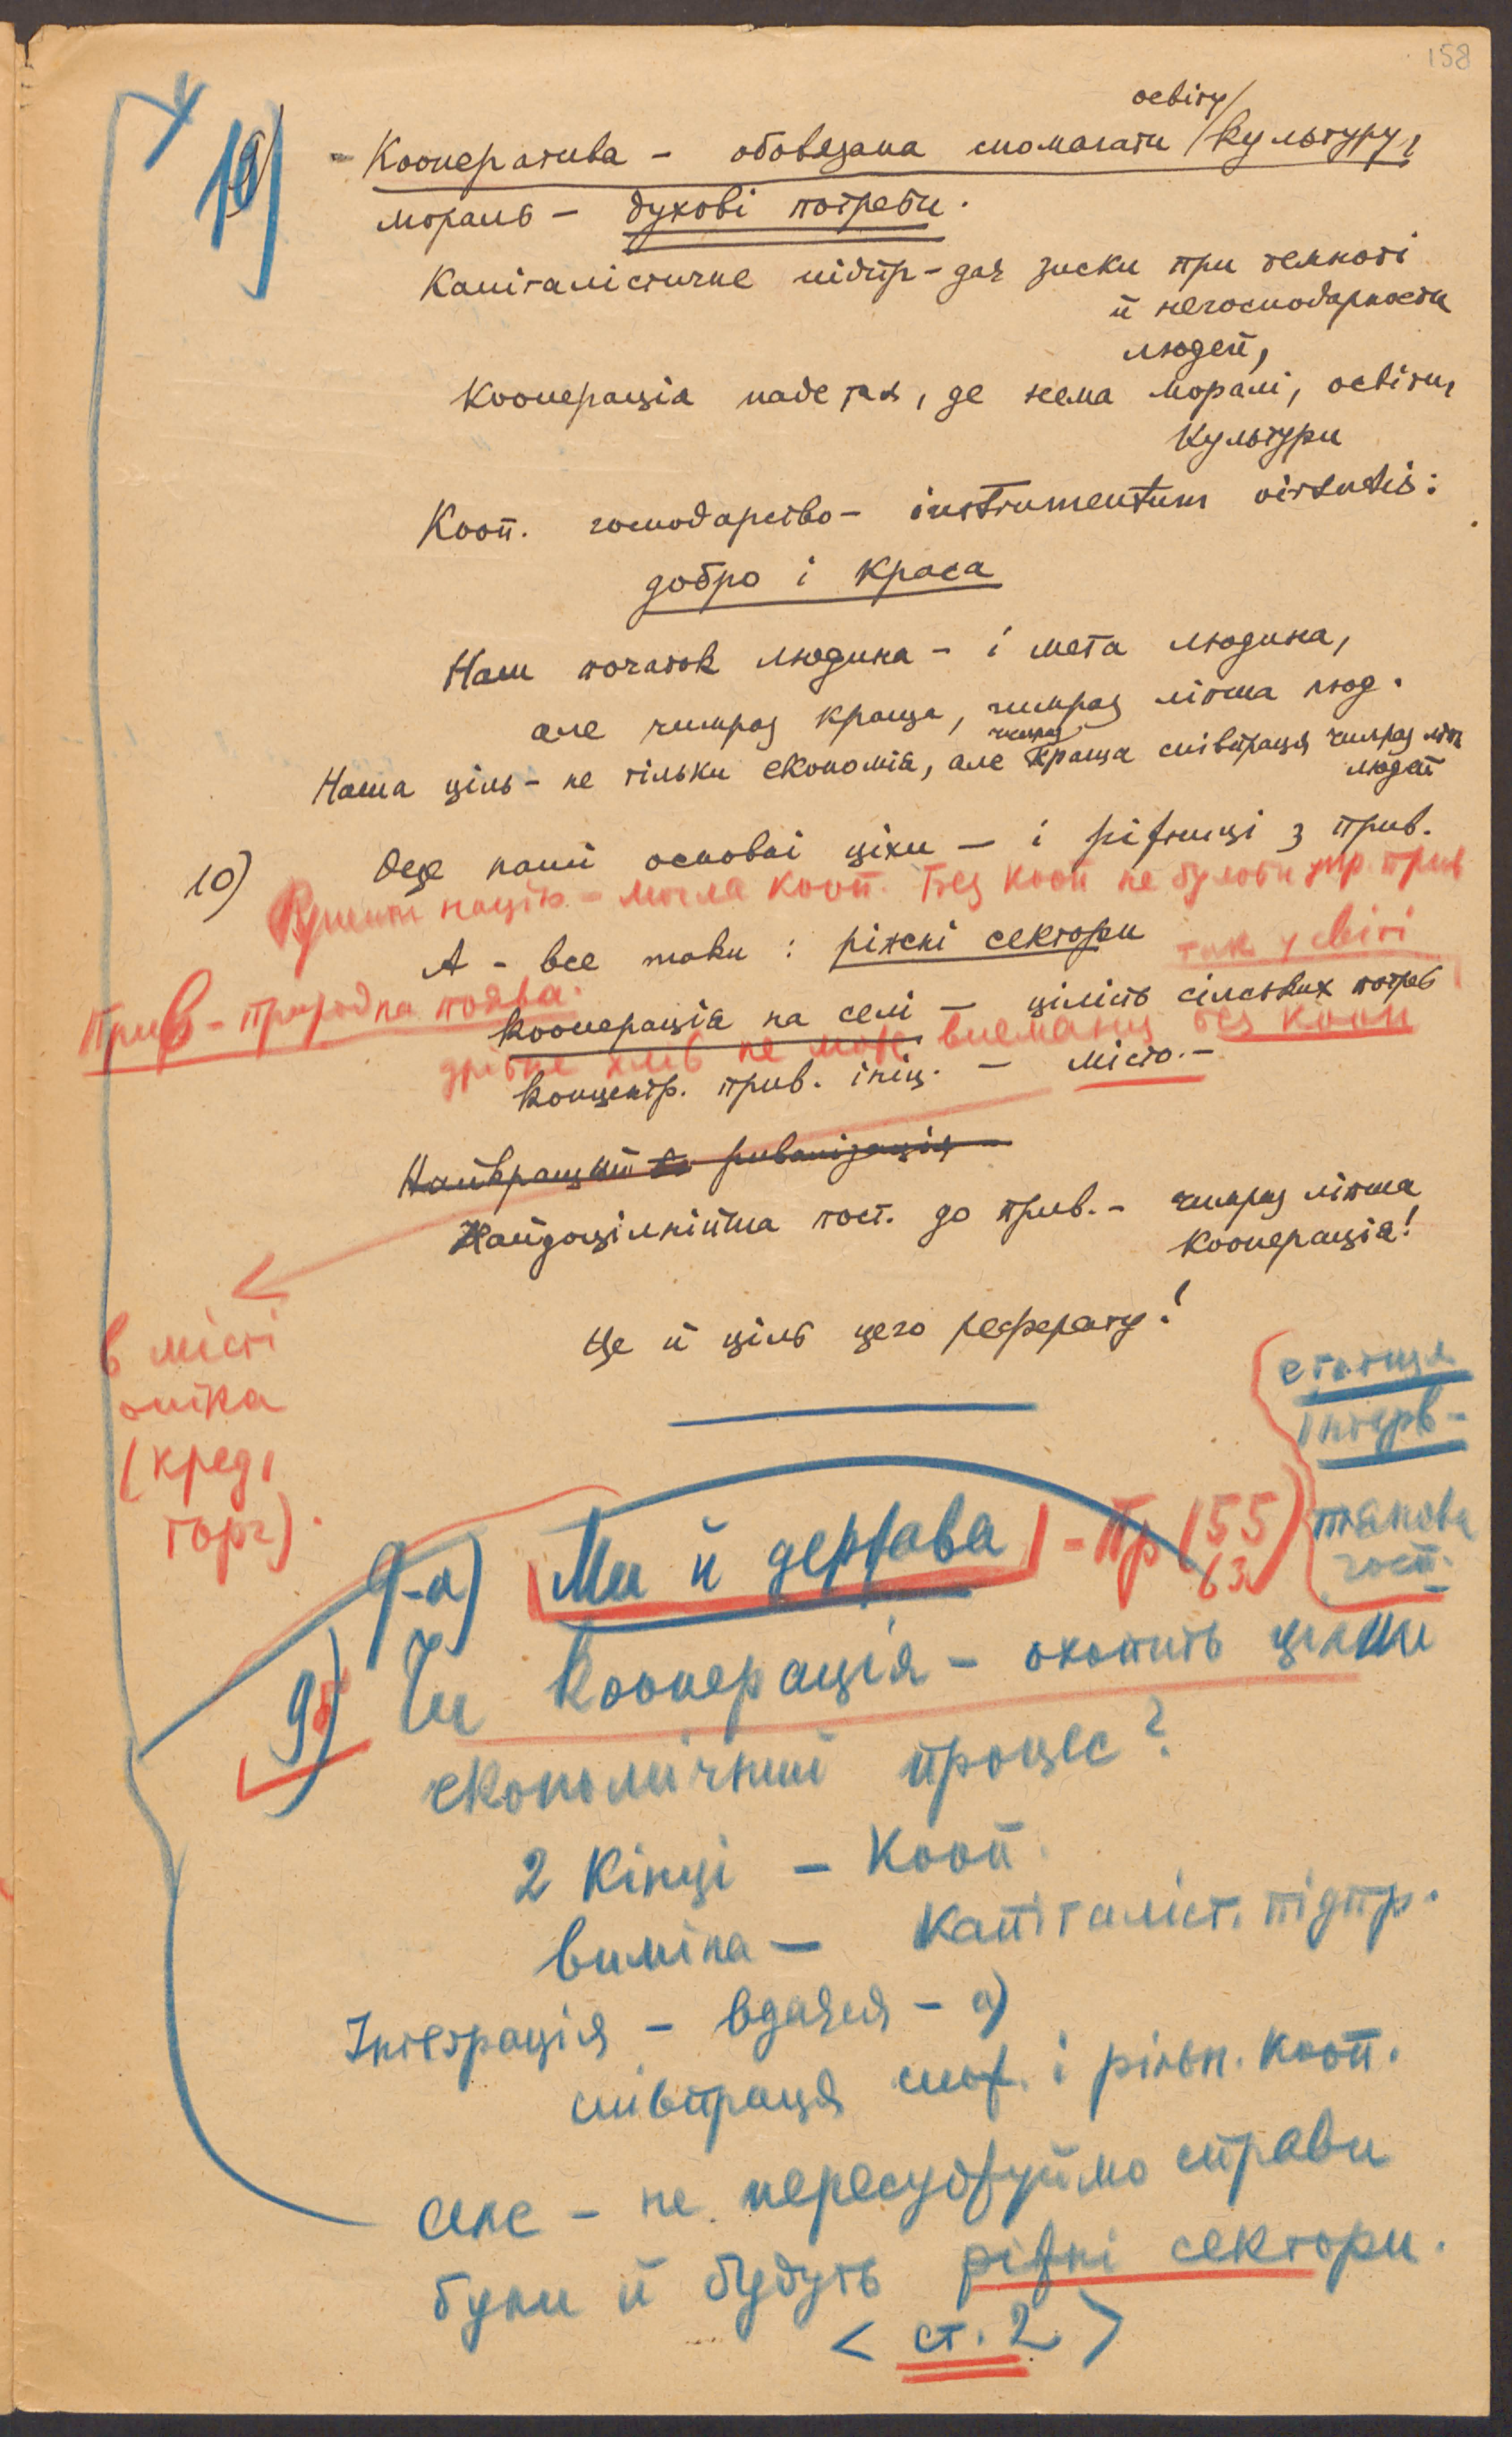 158
освіту/
19) - Кооператива - обовязана спомагати /культуру,
мораль - духові потреби.
Капіталістичне підпр - дає зиски при темноті
й негосподарности
людей,
Кооперація паде там, де нема моралі, освіти,
культури
Кооп. господарство - instrumentum virtutis:
добро і краса
Наш початок людина - і мета людина,
але чимраз краща, чимраз ліпша люд.
чимраз
Наша ціль - не тільки економія, але краща співпраця чимраз ліп
людей
10) Оце наші основні ціхи - і ріжниці з прив.
могла кооп. Без кооп не було би
А - все таки : ріжні сектори
так у світі
Прив - природна поява.
кооперація на селі - цілість сільських потреб
дрібне не може без кооп
концентр. прив. ініц. - місто. -
Найкращий ривалізація -
Найдоцільнійша пост. до прив. - чимраз ліпша
кооперація!
в місті
(кред,
торг).
Це й ціль цего реферату!
етатиза
інтерв-
плянова
госп.
9-а) Ми й держава - Пр (55
63)
9б) Чи кооперація - охопить цілий
економічний процес?
2 кінці - Кооп.
виміна - капіталіст. підпр.
Інтеграція - вдаться - а)
співпраця спож. і рільн. кооп.
але - не пересуджуймо справи
були й будуть ріжні сектори.
< ст. 2 >